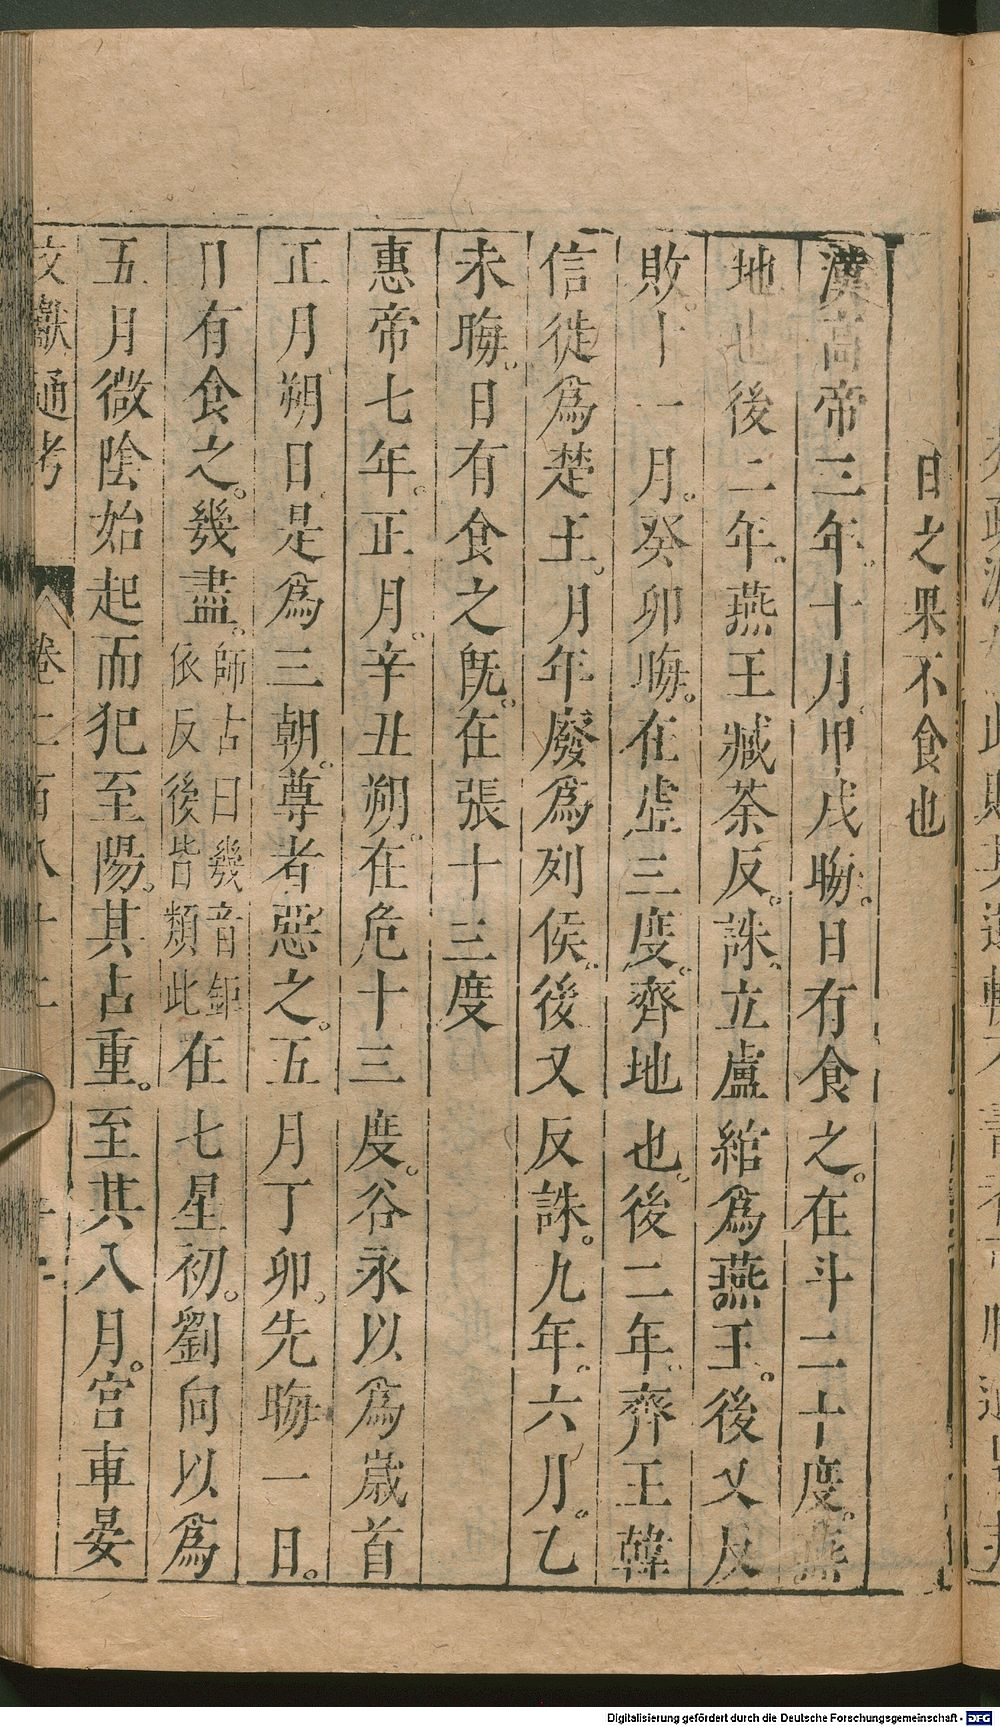 日之果不食也
漢高帝三年。十月。甲戌晦。日有食之。在斗二十度。燕
地也後二年。燕王臧荼反。誅。立盧綰爲燕王。後又反
敗。十一月。癸卯晦。在虛三度。齊地也。後二年。齊王韓
信徙爲楚王。月年廢爲列侯。後又反誅。九年。六月。乙
未晦。日有食之旣。在張十三度
惠帝七年。正月。辛丑朔。在危十三度。谷永以爲歲首
正月朔日。是爲三朝。尊者惡之。五月丁卯。先晦一日。
日有食之。幾盡。師古曰幾音鉅依反後皆類此在七星初。劉向以爲
五月微陰始起而犯至陽。其占重。至其八月。宮車晏
文獻通考 卷二百八十二
Digitalisierung gefördert durch die Deutsche Forschungsgemeinschaft - DFG